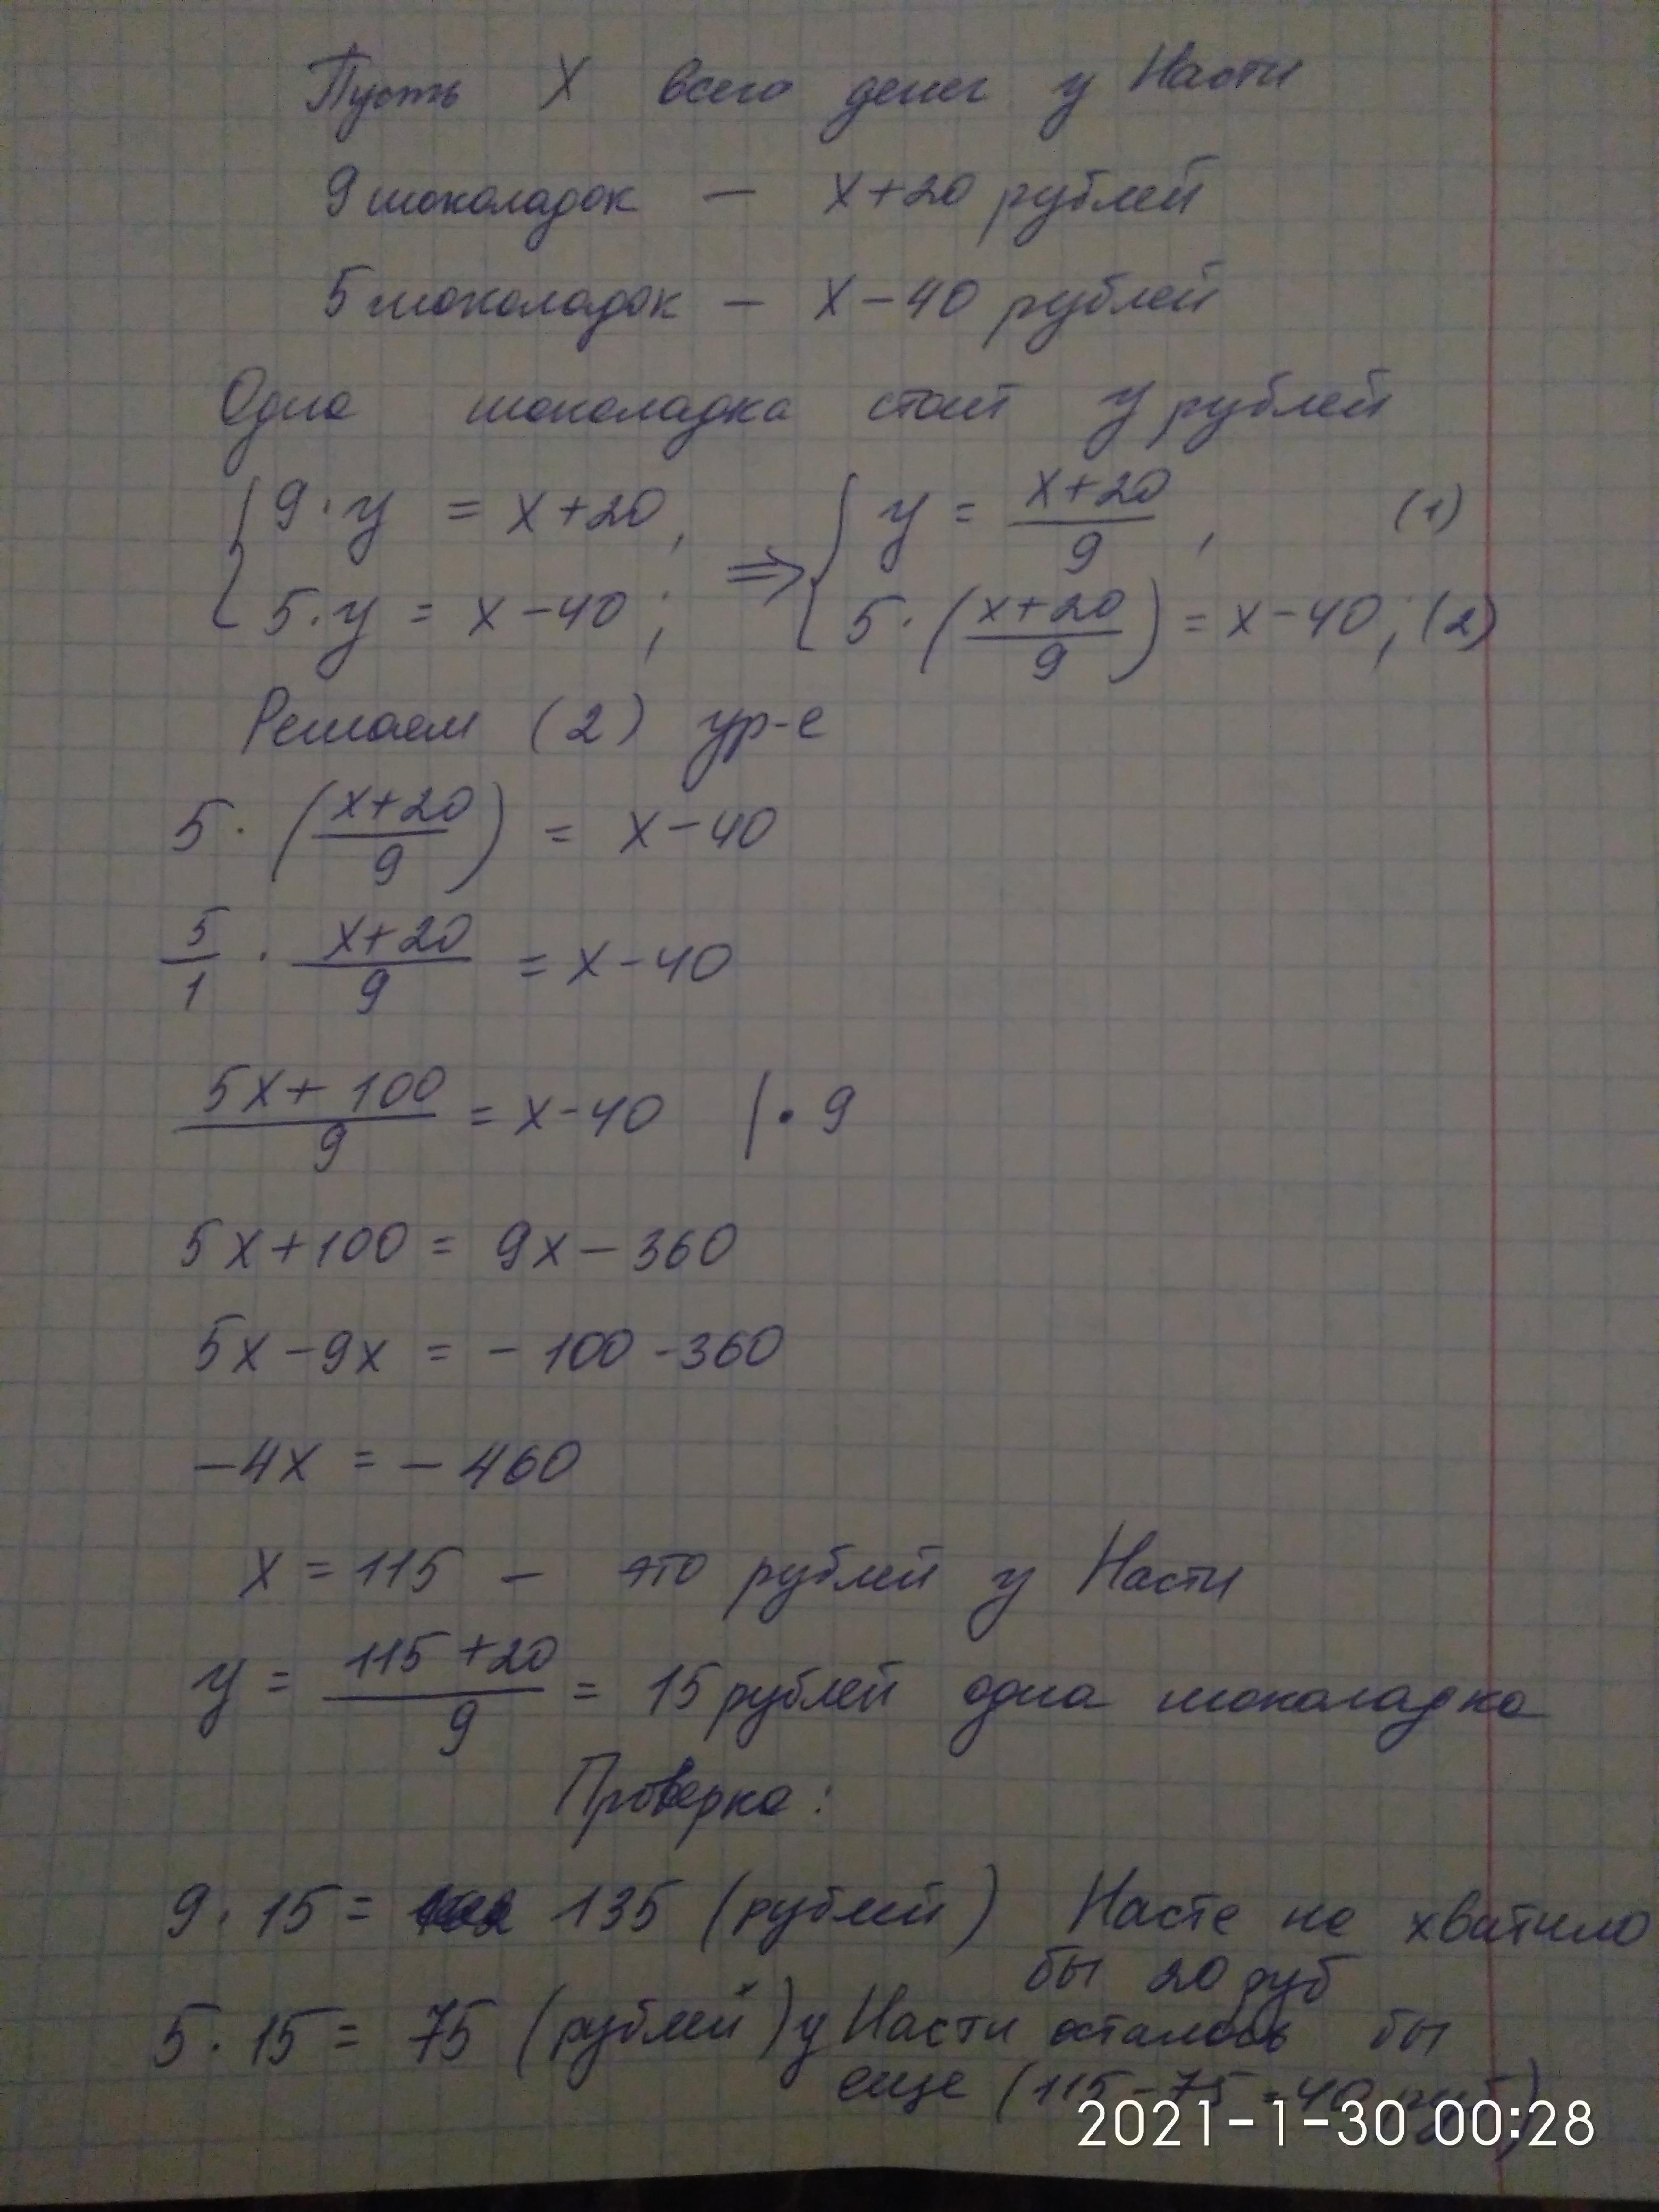 Пусть X всего денег у Насти
9 шоколадок — x+20 рублей
5 шоколадок — x-40 рублей
Одна шоколадка стоит y рублей
{ 9·y = x+20, ⇒ { y = (x+20)/9, (1)
{ 5·y = x-40; { 5·((x+20)/9) = x-40; (2)
Решаем (2) ур-е
5·((x+20)/9) = x-40
5/1 · (x+20)/9 = x-40
(5x+100)/9 = x-40 |·9
5x+100 = 9x-360
5x-9x = -100-360
-4x = -460
x = 115 — это рублей у Насти
y = (115+20)/9 = 15 рублей одна шоколадка
Проверка:
9·15 = 135 (рублей) Насте не хватило
бы 20 руб
5·15 = 75 (рублей) у Насти осталось бы
еще (115-75=40 руб)
2021-1-30 00:28